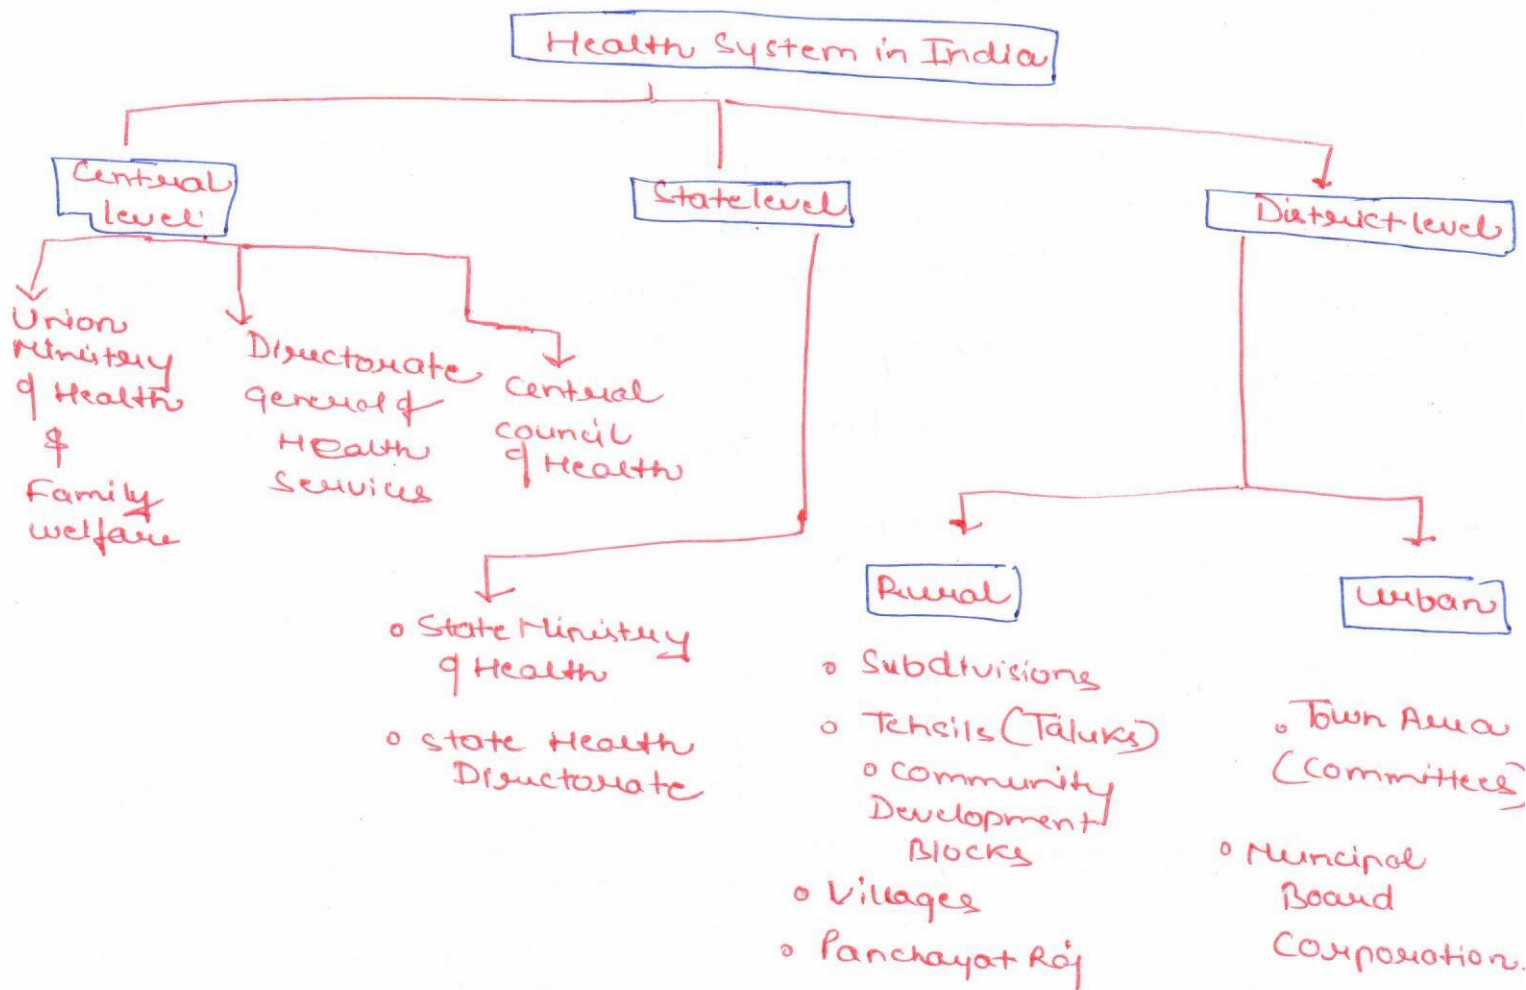 Health System in India
Central
level:
State level
District level
Union
Ministry
of Health
&
Family
welfare
Directorate
General of
Health
Services
Central
council
of Health
o State Ministry
of Health
o State Health
Directorate
Rural
o Subdivisions
o Tehsils (Taluks)
o Community
Development
Blocks
o Villages
o Panchayat Raj
Urban
o Town Area
(Committees)
o Muncipal
Board
Corporation.